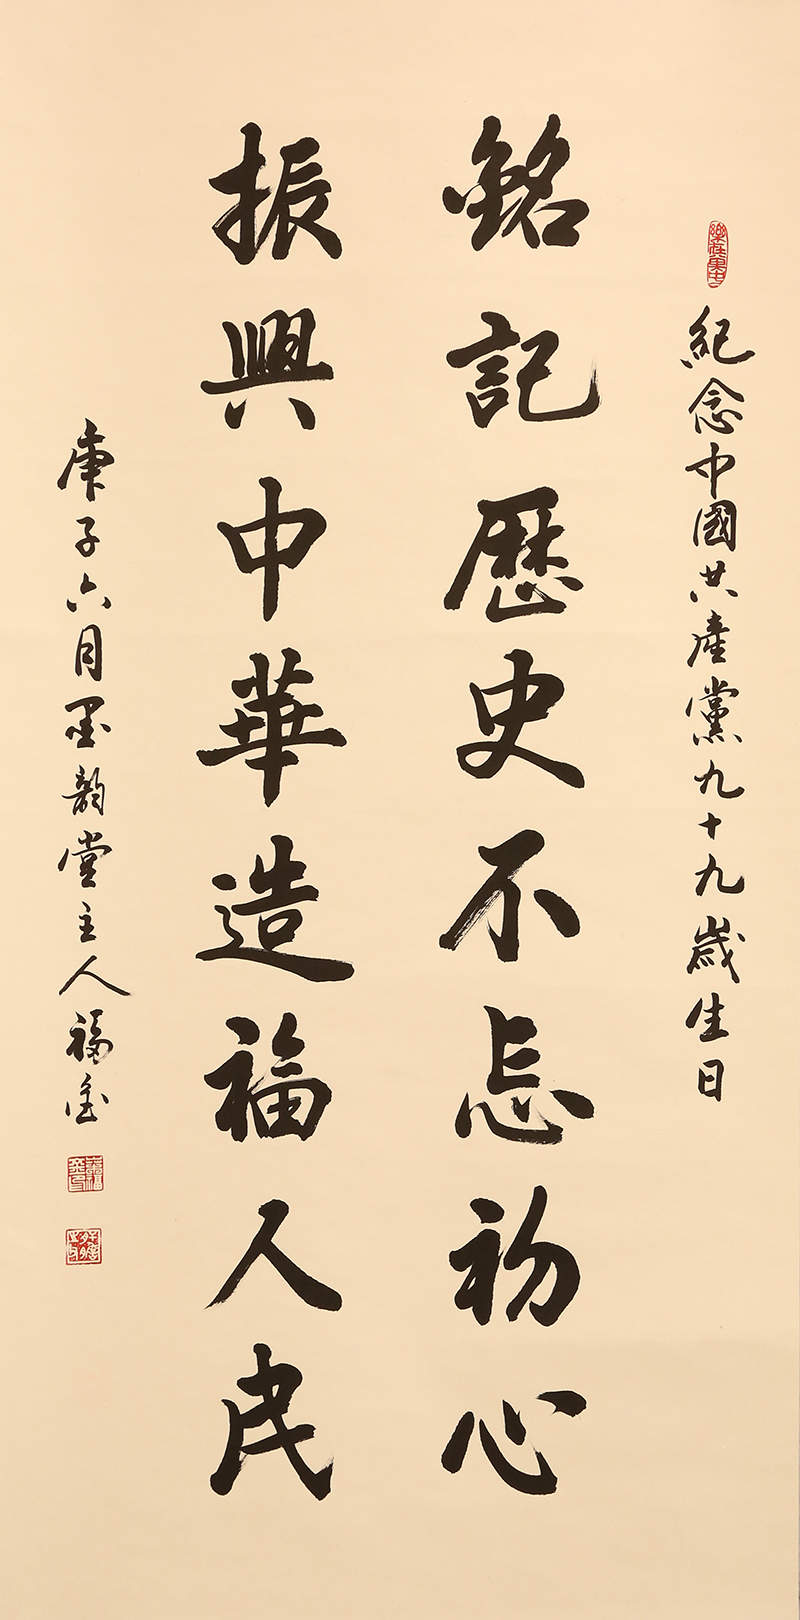 紀念中國共產黨九十九歲生日
銘記歷史不忘初心
振興中華造福人民
庚子六月墨韵堂主人福金